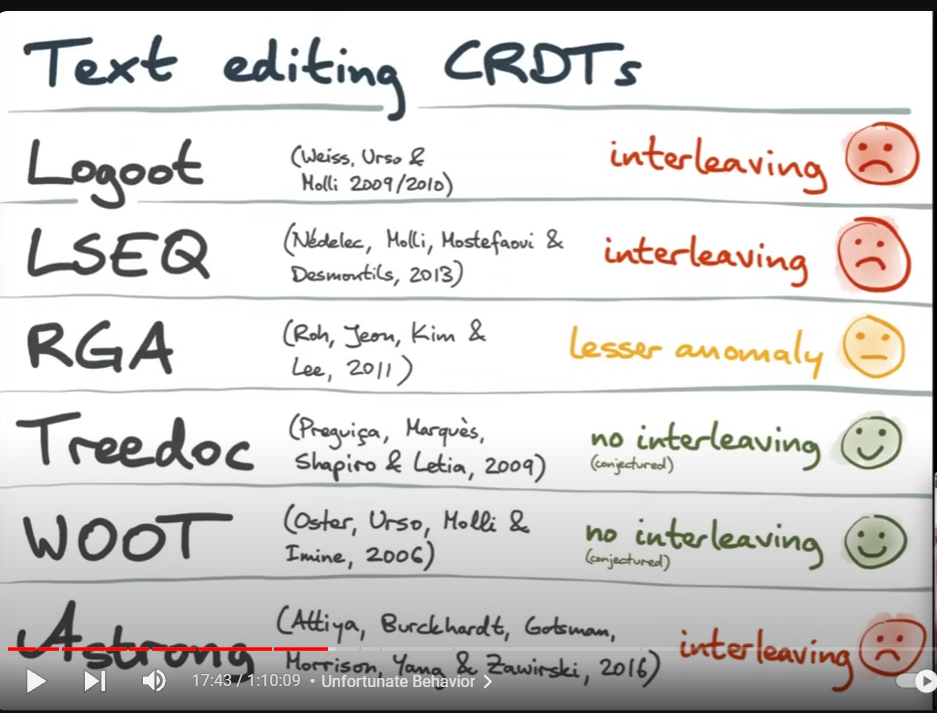 Text editing CRDTs
Logoot
(Weiss, Urso &
Molli 2009/2010)
interleaving
LSEQ
(Nédelec, Molli, Mostefaoui &
Desmontils, 2013)
interleaving
RGA
(Roh, Jeon, Kim &
Lee, 2011)
lesser anomaly
Treedoc
(Preguiça, Marquès,
Shapiro & Letia, 2009)
no interleaving
(conjectured)
WOOT
(Oster, Urso, Molli &
Imine, 2006)
no interleaving
(conjectured)
Astrong
(Attiya, Burckhardt, Gotsman,
Morrison, Yang & Zawirski, 2016)
interleaving
17:43 / 1:10:09 • Unfortunate Behavior